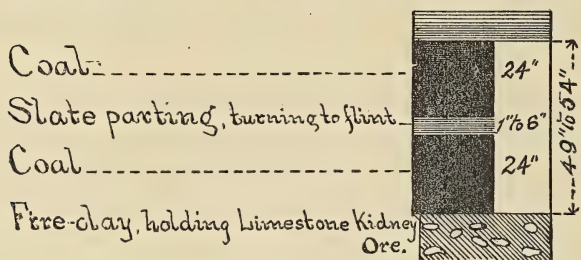 Coal 24"
Slate parting, turning to flint 1" to 6"
Coal 24"
49" to 54"
Fire-clay, holding Limestone Kidney
Ore.